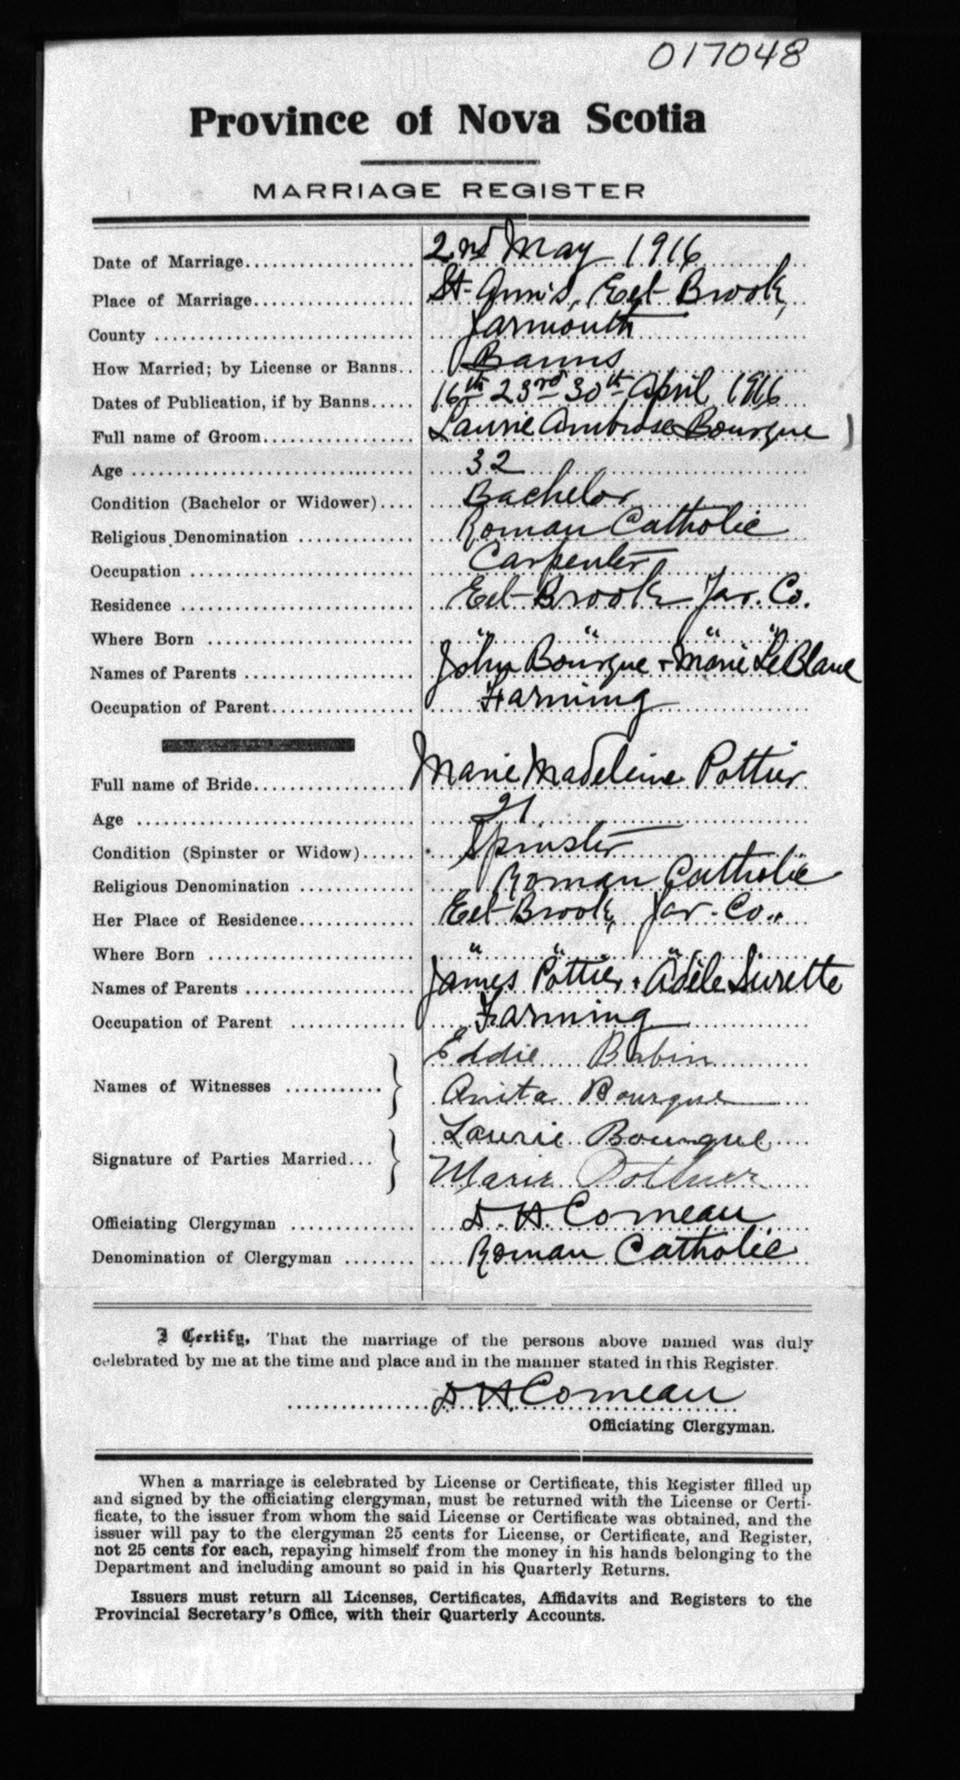 017048
Province of Nova Scotia
MARRIAGE REGISTER
Date of Marriage.................... 2nd May 1916
Place of Marriage................... St. Ann's, Eel Brook,
County .............................. Yarmouth
How Married; by License or Banns.. Banns
Dates of Publication, if by Banns..... 16th 23rd 30th April 1916
Full name of Groom.................. Laurie Ambrose Bourque
Age .................................. 32
Condition (Bachelor or Widower).... Bachelor
Religious Denomination ............. Roman Catholic
Occupation ........................... Carpenter
Residence ............................ Eel Brook Yar. Co.
Where Born ......................... " " " "
Names of Parents .................... John Bourque + Marie LeBlanc
Occupation of Parent................. Farming
Full name of Bride................... Marie Madeleine Pottier
Age .................................. 21
Condition (Spinster or Widow)...... Spinster
Religious Denomination ............. Roman Catholic
Her Place of Residence.............. Eel Brook, Yar. Co.
Where Born ......................... " " "
Names of Parents .................... James Pottier + Adèle Surette
Occupation of Parent ............... Farming
Names of Witnesses ........... } Eddie Babin
Anita Bourque
Signature of Parties Married... } Laurie Bourque
Marie Pothier
Officiating Clergyman ............... D. H. Comeau
Denomination of Clergyman ........ Roman Catholic
I Certify, That the marriage of the persons above named was duly
celebrated by me at the time and place and in the manner stated in this Register.
D H. Comeau
Officiating Clergyman.
When a marriage is celebrated by License or Certificate, this Register filled up
and signed by the officiating clergyman, must be returned with the License or Certi-
ficate, to the issuer from whom the said License or Certificate was obtained, and the
issuer will pay to the clergyman 25 cents for License, or Certificate, and Register,
not 25 cents for each, repaying himself from the money in his hands belonging to the
Department and including amount so paid in his Quarterly Returns.
Issuers must return all Licenses, Certificates, Affidavits and Registers to the
Provincial Secretary's Office, with their Quarterly Accounts.